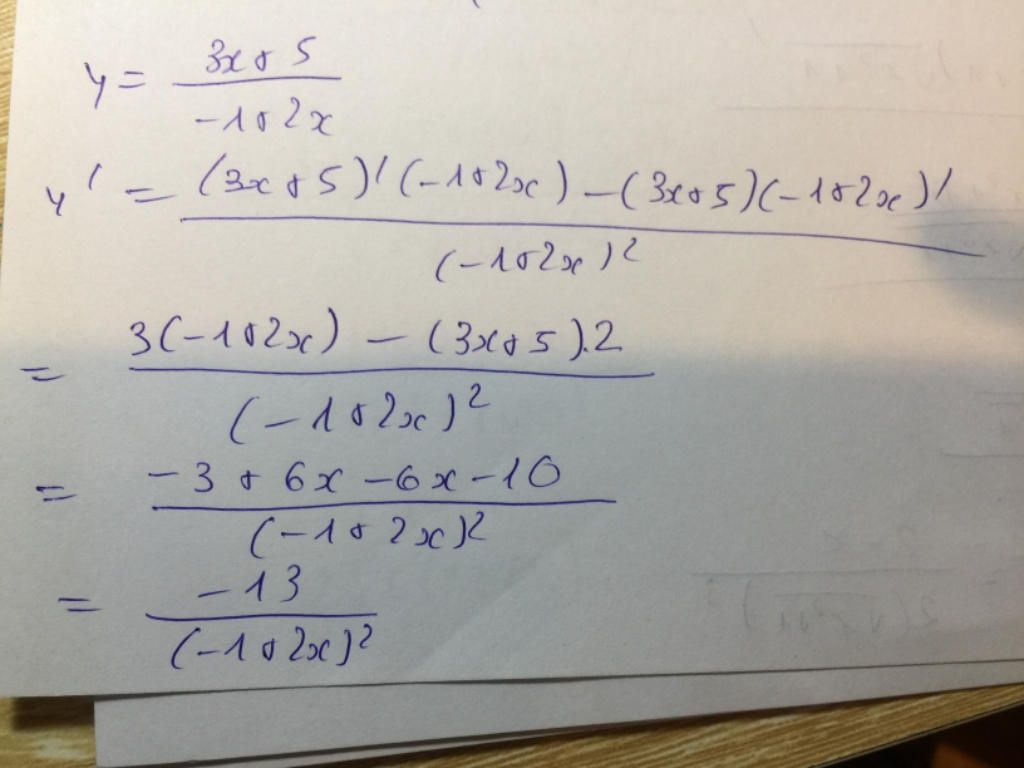 y = \frac{3x+5}{-1+2x}
y' = \frac{(3x+5)'(-1+2x) - (3x+5)(-1+2x)'}{(-1+2x)^2}
= \frac{3(-1+2x) - (3x+5).2}{(-1+2x)^2}
= \frac{-3+6x-6x-10}{(-1+2x)^2}
= \frac{-13}{(-1+2x)^2}